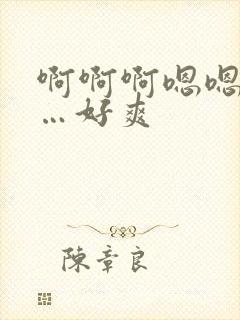 啊啊啊嗯嗯
…好爽
陈章良